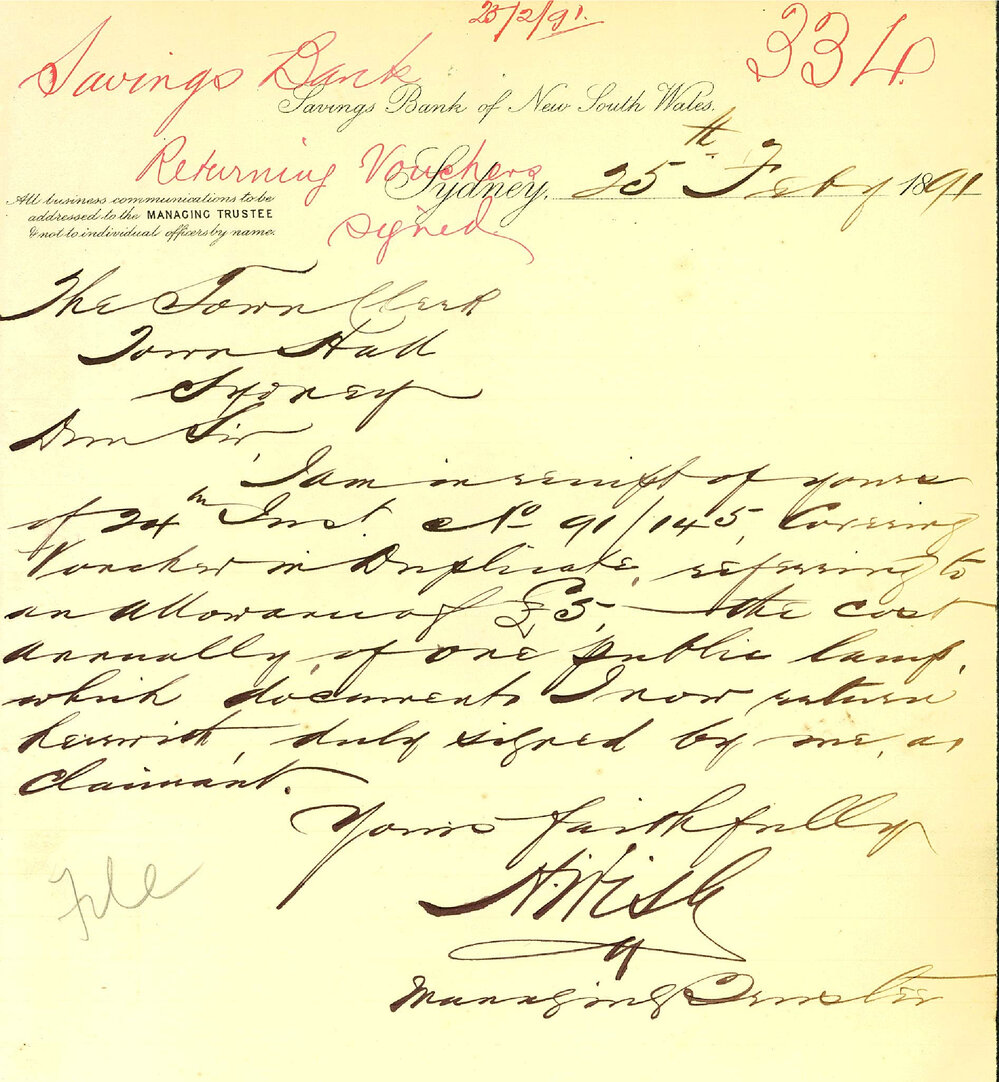 25/2/91.
334
Savings Bank
Savings Bank of New South Wales.
Returning Vouchers
signed
Sydney, 25th Feby 1891
All business communications to be
addressed to the MANAGING TRUSTEE
& not to individual officers by name.
The Town Clerk
Town Hall
Sydney
Dear Sir
I am in receipt of yours
of 24th Inst. No 91/145, Covering
Voucher in Duplicate, referring to
an allowance of £5, – the cost
annually, of one public lamp,
which documents I now return
herewith, duly signed by me, as
Claimant.
Yours faithfully
File
Managing Trustee